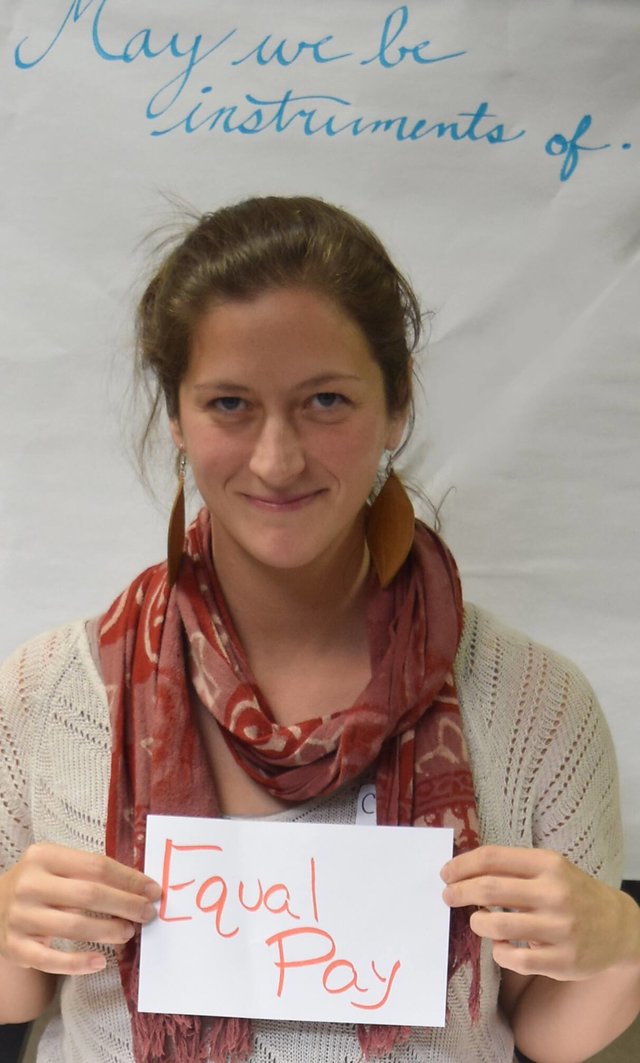 May we be
instruments of.
C
Equal
Pay